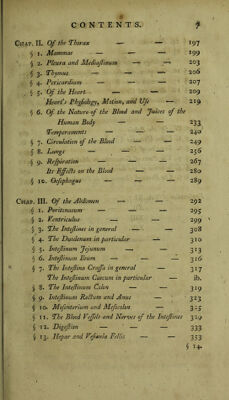 CONTENTS. 7
CHAP. II. Of the Thorax — — 197
§ 1. Mammæ — — 199
§ 2. Pleura and Mediastinum — — 203
§ 3. Thymus — — — 206
§ 4. Pericardium — — — 207
§ 5. Of the Heart — — 209
Heart's Physiology, Motion, and Use — 219
§ 6. Of the Nature of the Blood and Juices of the
Human Body — — 233
Temperaments — — 240
§ 7. Circulation of the Blood — — 249
§ 8. Lungs — — — 256
§ 9. Respiration — — — 267
Its Effects on the Blood — — 280
§ 10. Oesophagus — — — 289
CHAP. III. Of the Abdomen — — 292
§ 1. Peritonæum — — 295
§ 2. Ventriculus — — — 299
§ 3. The Intestines in general — — 308
§ 4. The Duodenum in particular — 310
§ 5. Intestinum Jejunum — — 313
§ 6. Intestinum Ileum — — 316
§ 7. The Intestina Crassa in general — 317
The Intestinum Caecum in particular — ib.
§ 8. The Intestinum Colon — — 319
§ 9. Intestinum Rectum and Anus — 323
§ 10. Mesenterium and Mesocolon — 325
§ 11. The Blood Vessels and Nerves of the Intestines 329
§ 12. Digestion — — — 333
§ 13. Hepar and Vesicula Fellis — 353
§ 14.